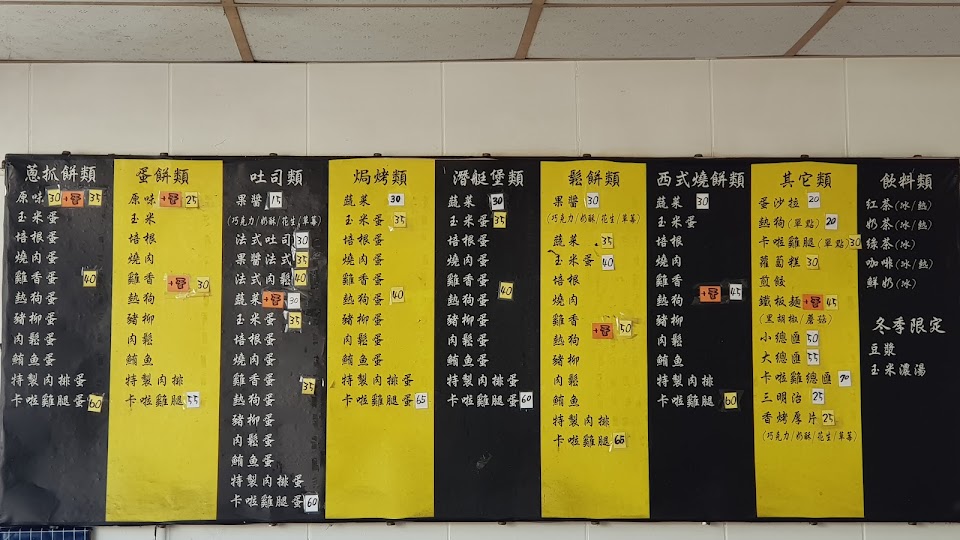 蔥抓餅類
原味 30 +蛋 35
玉米蛋
培根蛋
燒肉蛋
雞香蛋 40
熱狗蛋
豬柳蛋
肉鬆蛋
鮪魚蛋
特製肉排蛋
卡啦雞腿蛋 60
蛋餅類
原味 +蛋 25
玉米
培根
燒肉
雞香 +蛋 30
熱狗
豬柳
肉鬆
鮪魚
特製肉排
卡啦雞腿 55
吐司類
果醬 15
(巧克力/奶酥/花生/草莓)
法式吐司 30
果醬法式 35
法式肉鬆 40
蔬菜 +蛋 30
玉米蛋 35
培根蛋
燒肉蛋
雞香蛋 35
熱狗蛋
豬柳蛋
肉鬆蛋
鮪魚蛋
特製肉排蛋
卡啦雞腿蛋 60
焗烤類
蔬菜 30
玉米蛋 35
培根蛋
燒肉蛋
雞香蛋
熱狗蛋 40
豬柳蛋
肉鬆蛋
鮪魚蛋
特製肉排蛋
卡啦雞腿蛋 65
潛艇堡類
蔬菜 30
玉米蛋 35
培根蛋
燒肉蛋
雞香蛋 40
熱狗蛋
豬柳蛋
肉鬆蛋
鮪魚蛋
特製肉排蛋
卡啦雞腿蛋 60
鬆餅類
果醬 30
(巧克力/奶酥/花生/草莓)
蔬菜 35
玉米蛋 40
培根
燒肉
雞香 +蛋 50
熱狗
豬柳
肉鬆
鮪魚
特製肉排
卡啦雞腿 65
西式燒餅類
蔬菜 30
玉米蛋
培根
燒肉
雞香
熱狗 +蛋 45
豬柳
肉鬆
鮪魚
特製肉排
卡啦雞腿 60
其它類
蛋沙拉 20
熱狗(單點) 20
卡啦雞腿(單點) 30
蘿蔔糕 30
煎餃
鐵板麵 +蛋 45
(黑胡椒/蘑菇)
小總匯 50
大總匯 55
卡啦雞總匯 70
三明治 25
香烤厚片 25
(巧克力/奶酥/花生/草莓)
飲料類
紅茶(冰/熱)
奶茶(冰/熱)
綠茶(冰)
咖啡(冰/熱)
鮮奶(冰)
冬季限定
豆漿
玉米濃湯